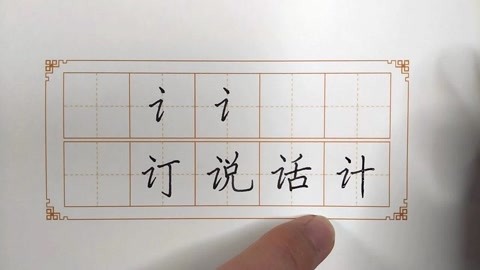 讠讠
订说话计